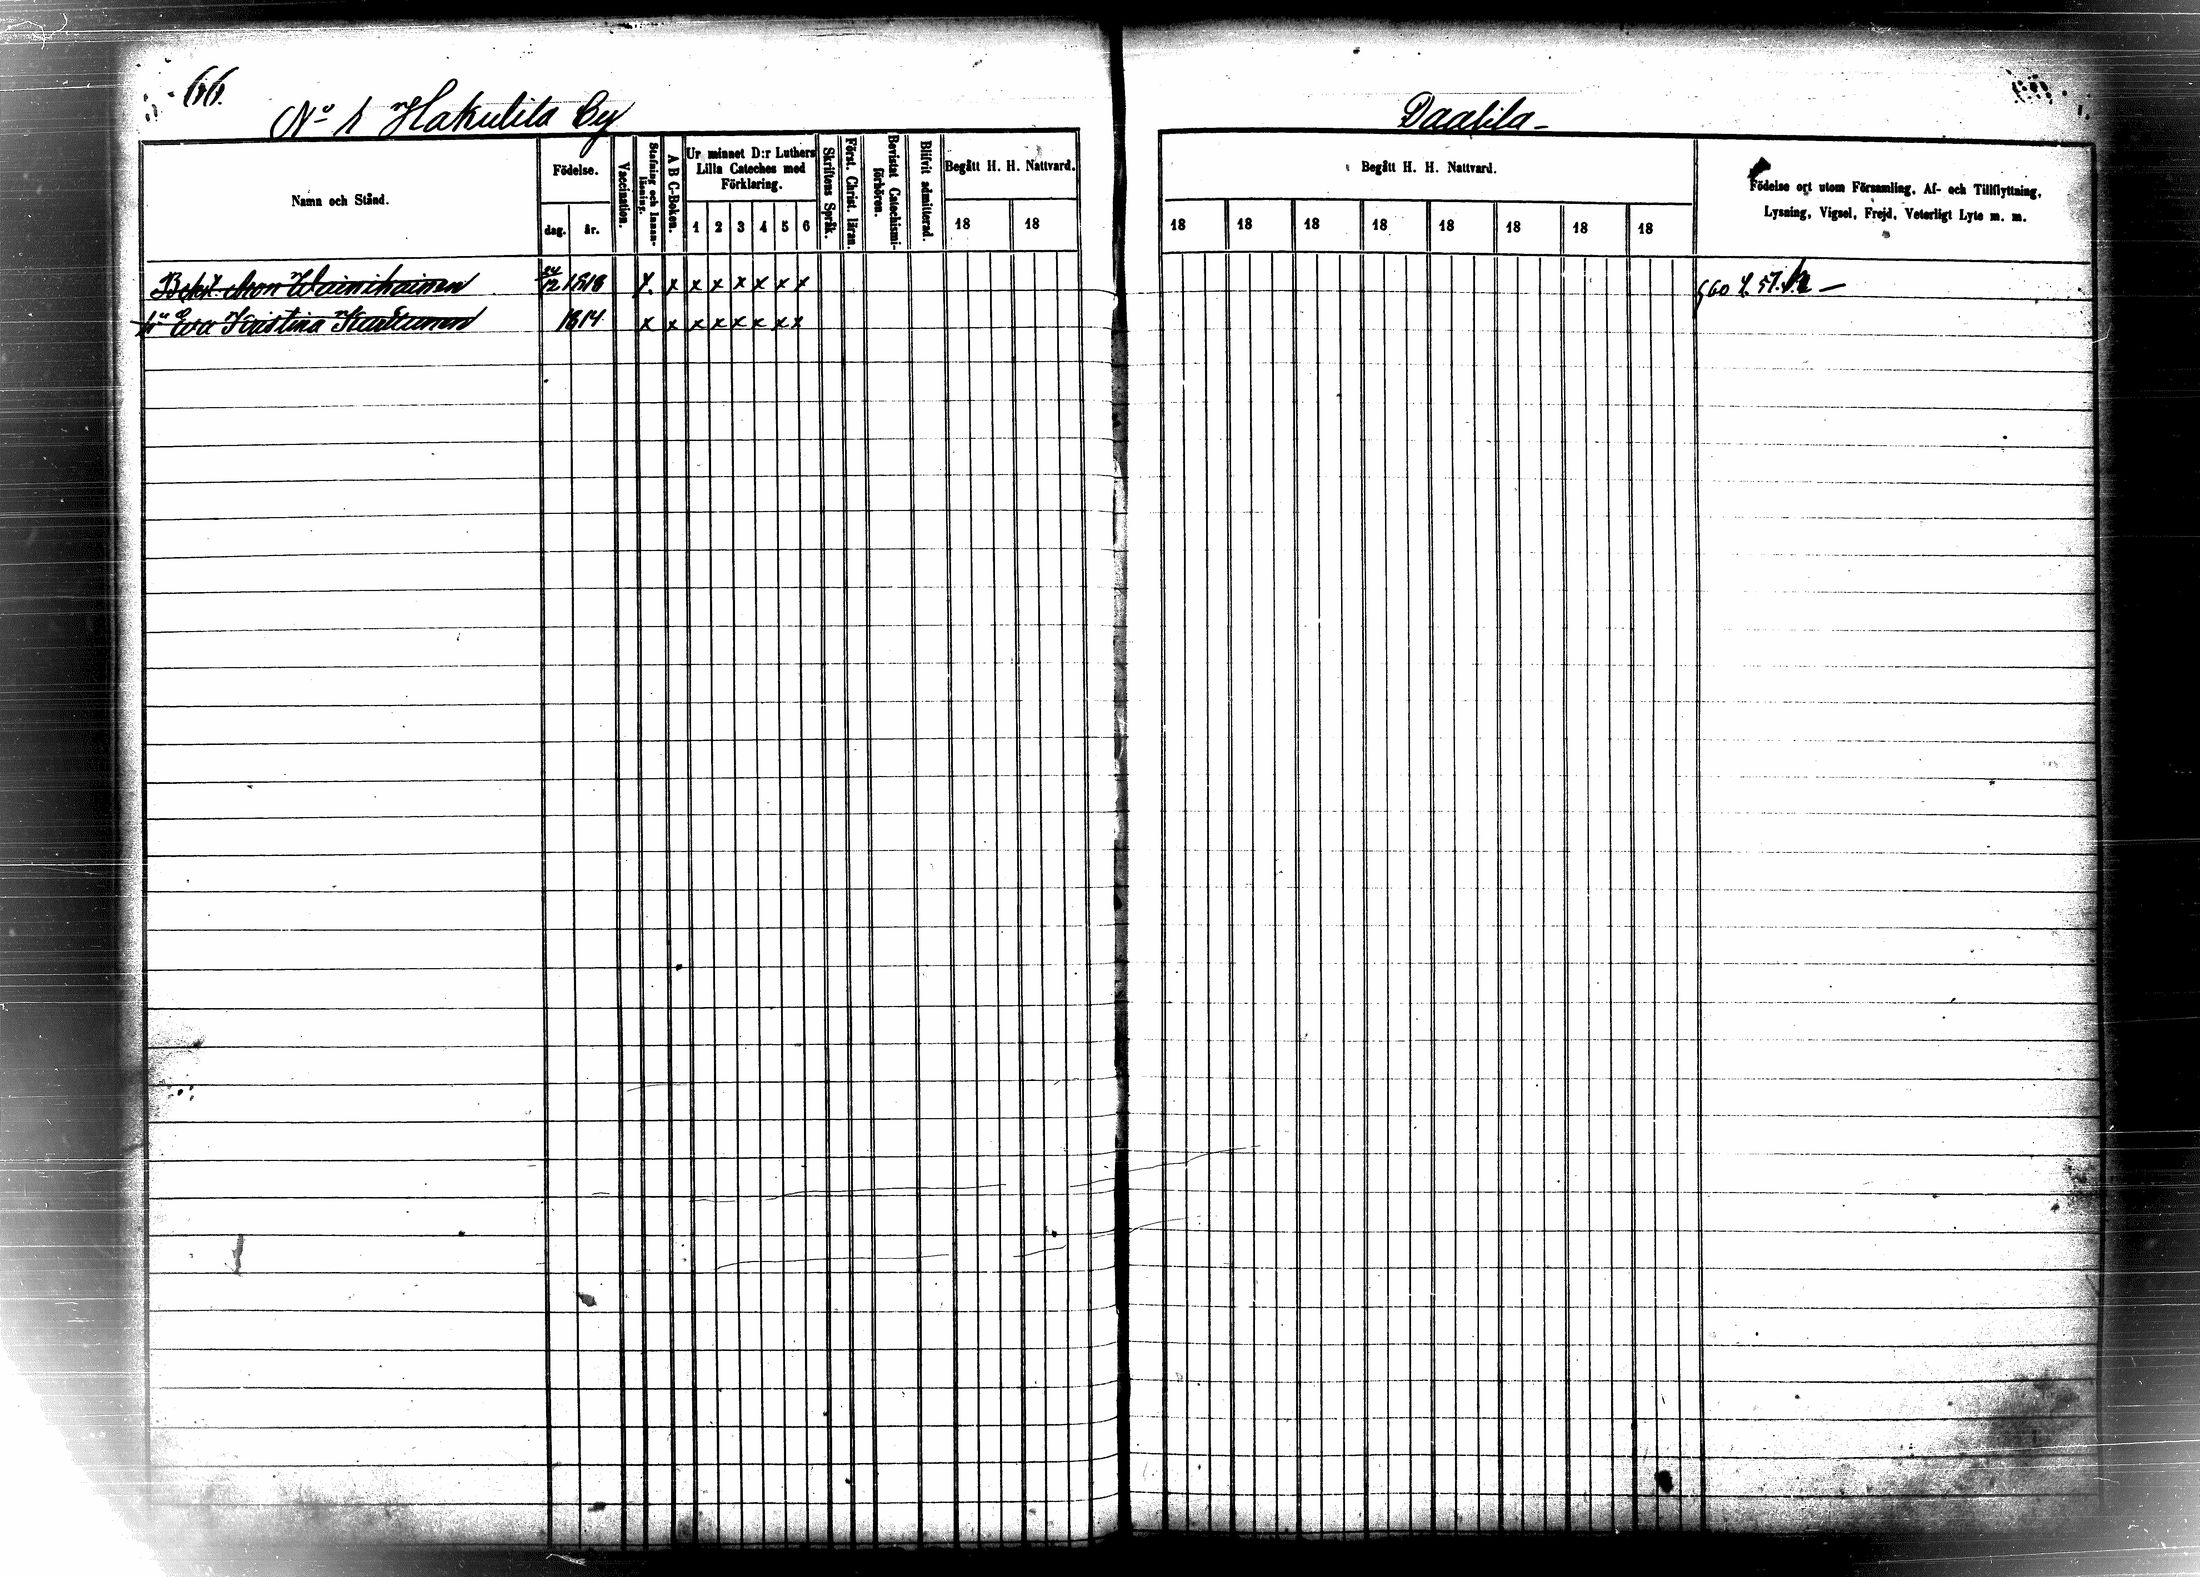 66.
No 1 Hakulila By
Daalila
Namn och Stånd.
Födelse.
dag.
år.
Vaccination.
Stafning och Innan-
läsning.
A B C-Boken.
Ur minnet D:r Luthers
Lilla Cateches med
Förklaring.
1 2 3 4 5 6
Skriftens Språk.
Först. Christ. läran.
Bevistat Catechismi-
förhören.
Blifvit admitterad.
Begått H. H. Nattvard.
18 18
Begått H. H. Nattvard.
18 18 18 18 18 18 18 18
Födelse ort utom Församling, Af- och Tillflyttning,
Lysning, Vigsel, Frejd, Veterligt Lyte m. m.
24/12 1818 x x x x x x x x
Eva Kristina 1814 x x x x x x x x